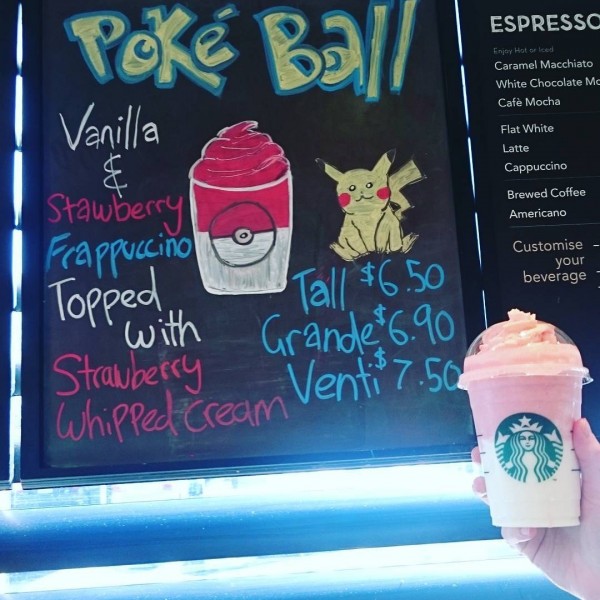 Poké Ball
Vanilla
&
Stawberry
Frappuccino
Topped
with
Strawberry
Whipped Cream
Tall $6.50
Grande $6.90
Venti $7.50
ESPRESSO
Enjoy Hot or Iced
Caramel Macchiato
White Chocolate Mo
Cafè Mocha
Flat White
Latte
Cappuccino
Brewed Coffee
Americano
Customise
your
beverage